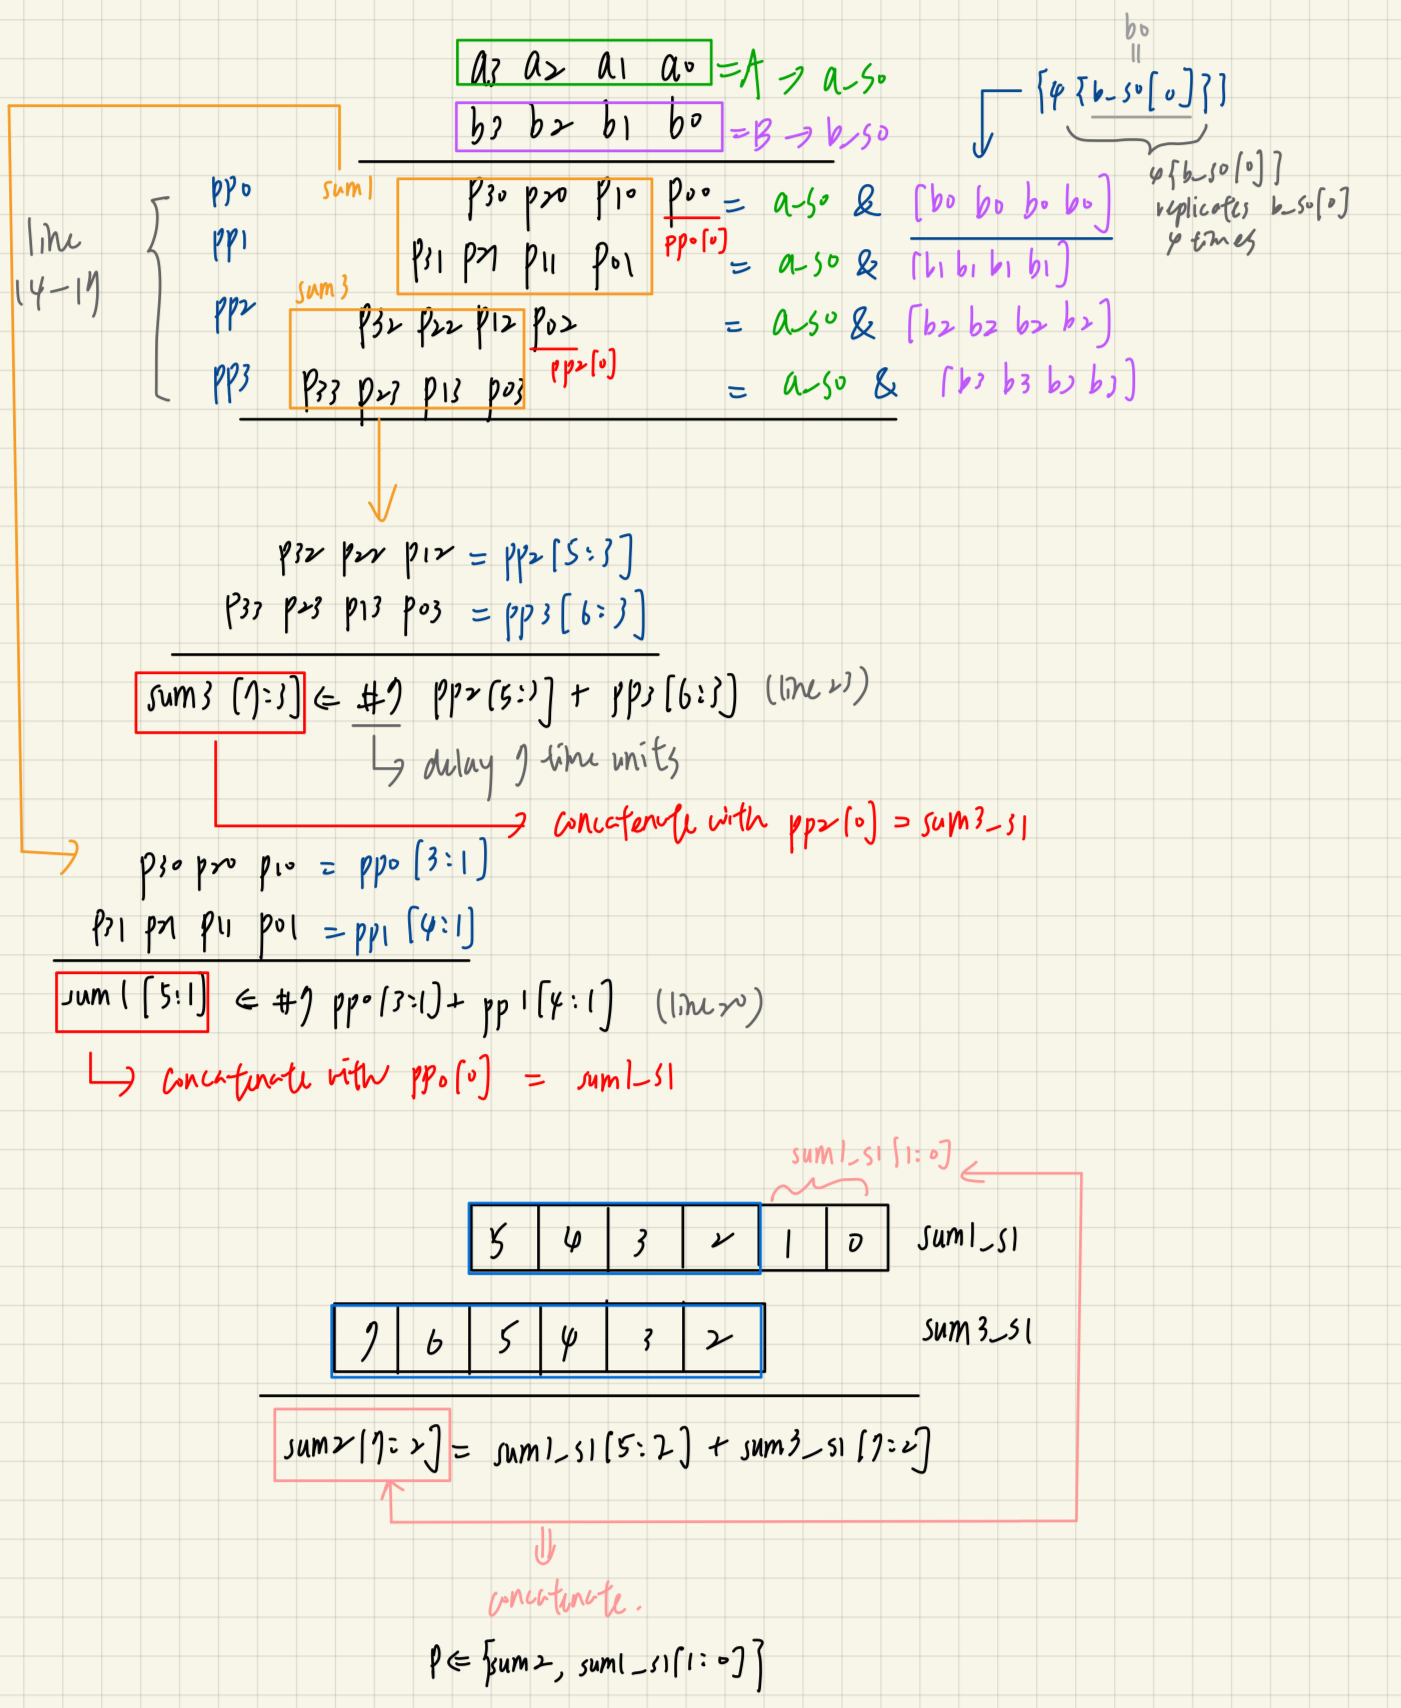 b0
||
a3 a2 a1 a0 =A → a_s0
{4{b_s0[0]}}
b3 b2 b1 b0 =B → b_s0
4{b_s0[0]}
replicates b_s0[0]
4 times
line
14-17
pp0 sum1 p30 p20 p10 p00 = a_s0 & [b0 b0 b0 b0]
pp0[0]
pp1 p31 p21 p11 p01 = a_s0 & [b1 b1 b1 b1]
sum3
pp2 p32 p22 p12 p02 = a_s0 & [b2 b2 b2 b2]
pp2[0]
pp3 p33 p23 p13 p03 = a_s0 & [b3 b3 b3 b3]
p32 p22 p12 = pp2[5:3]
p33 p23 p13 p03 = pp3[6:3]
sum3 [7:3] ⇐ #7 pp2[5:3] + pp3[6:3] (line 23)
↳ delay 7 time units
→ concatenate with pp2[0] = sum3_s1
p30 p20 p10 = pp0 [3:1]
p31 p21 p11 p01 = pp1 [4:1]
sum1 [5:1] ⇐ #7 pp0[3:1] + pp1[4:1] (line 20)
↳ concatenate with pp0[0] = sum1_s1
sum1_s1[1:0]
5 4 3 2 1 0 sum1_s1
7 6 5 4 3 2 sum3_s1
sum2[7:2] = sum1_s1[5:2] + sum3_s1[7:2]
⇓
concatenate.
P ⇐ {sum2, sum1_s1[1:0]}